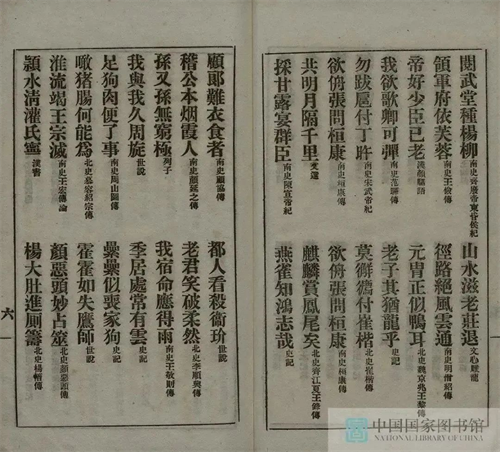 閱武堂種楊柳 南史齊廢帝東昏侯紀
山水滋老莊退 文心雕龍
領軍府依芙蓉 南史王儉傳
徑路絕風雲通 南史明僧紹傳
帝好少臣已老 漢顏駟語
元冑正似鴨耳 北史魏京兆王黎傳
我欲歌卿可彈 南史范曄傳
老子其猶龍乎 史記
勿跋扈付丁旿 南史宋武帝紀
莫付崔楷 北史崔楷傳
欲侜張問桓康 南史桓康傳
欲侜張問桓康 南史桓康傳
共明月隔千里 文選
麒麟賞鳳尾矣 齊江夏王鋒傳
採甘露宴群臣 南史陳宣帝紀
燕雀知鴻志哉 史記
顧郎難衣食者 南史顧協傳
都人看殺衞玠 世說
稽公本烟霞人 南史顏延之傳
老君笑破柔然 北史李順興傳
孫又孫無窮極 列子
我宿命應得雨 南史王敬則傳
我與我久周旋 世說
季居處常有雲 史記
足狗肉便了事 南史周山圖傳
纍纍似喪家狗 史記
噉猪腸何能為 北史慕容紹宗傳
霍霍如失鷹師 世說
淮流竭王宗滅 南史王宏傳論
顏惡頭妙占筮 北史顏惡頭傳
潁水清灌氏寧 漢書
楊大肚進厠籌 北史楊愔傳
六
中国国家图书馆
NATIONAL LIBRARY OF CHINA